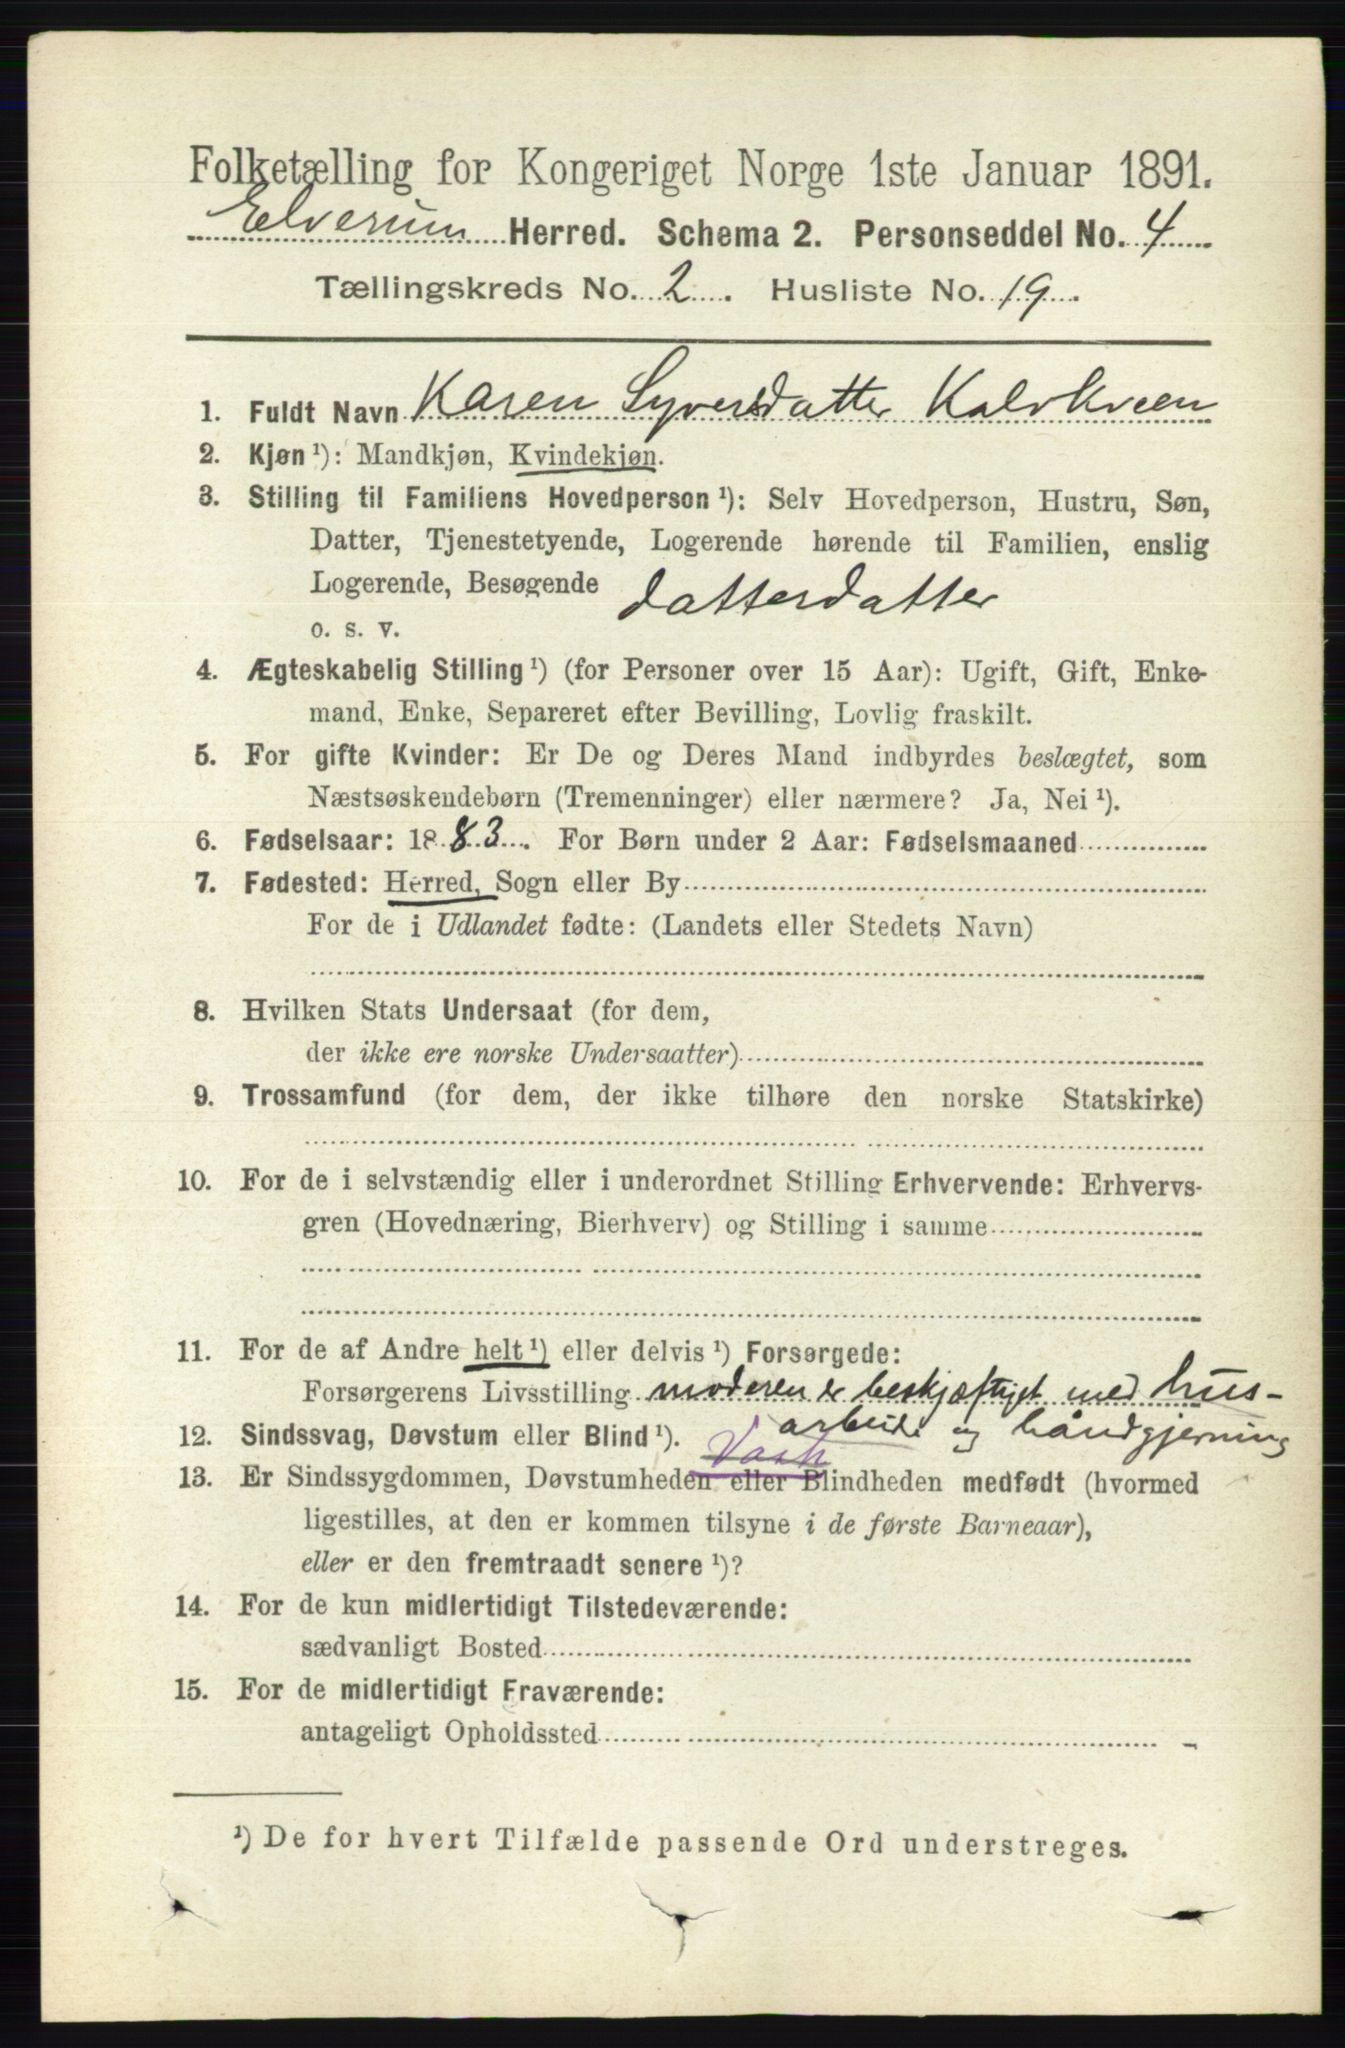 Folketælling for Kongeriget Norge 1ste Januar 1891.
Elverum Herred. Schema 2. Personseddel No. 4
Tællingskreds No. 2. Husliste No. 19.
1. Fuldt Navn Karen Syversdatter Kalvkveen
2. Kjøn ¹): Mandkjøn, Kvindekjøn.
3. Stilling til Familiens Hovedperson ¹): Selv Hovedperson, Hustru, Søn,
Datter, Tjenestetyende, Logerende hørende til Familien, enslig
Logerende, Besøgende datterdatter
o. s. v.
4. Ægteskabelig Stilling ¹) (for Personer over 15 Aar): Ugift, Gift, Enke-
mand, Enke, Separeret efter Bevilling, Lovlig fraskilt.
5. For gifte Kvinder: Er De og Deres Mand indbyrdes beslægtet, som
Næstsøskendebørn (Tremenninger) eller nærmere? Ja, Nei ¹).
6. Fødselsaar: 1883. For Børn under 2 Aar: Fødselsmaaned
7. Fødested: Herred, Sogn eller By
For de i Udlandet fødte: (Landets eller Stedets Navn)
8. Hvilken Stats Undersaat (for dem,
der ikke ere norske Undersaatter)
9. Trossamfund (for dem, der ikke tilhøre den norske Statskirke)
10. For de i selvstændig eller i underordnet Stilling Erhvervende: Erhvervs-
gren (Hovednæring, Bierhverv) og Stilling i samme
11. For de af Andre helt ¹) eller delvis ¹) Forsørgede:
Forsørgerens Livsstilling moderen er beskjæftiget med hus-
arbeide og håndgjerning
12. Sindssvag, Døvstum eller Blind ¹). Vask
13. Er Sindssygdommen, Døvstumheden eller Blindheden medfødt (hvormed
ligestilles, at den er kommen tilsyne i de første Barneaar),
eller er den fremtraadt senere ¹)?
14. For de kun midlertidigt Tilstedeværende:
sædvanligt Bosted
15. For de midlertidigt Fraværende:
antageligt Opholdssted
¹) De for hvert Tilfælde passende Ord understreges.